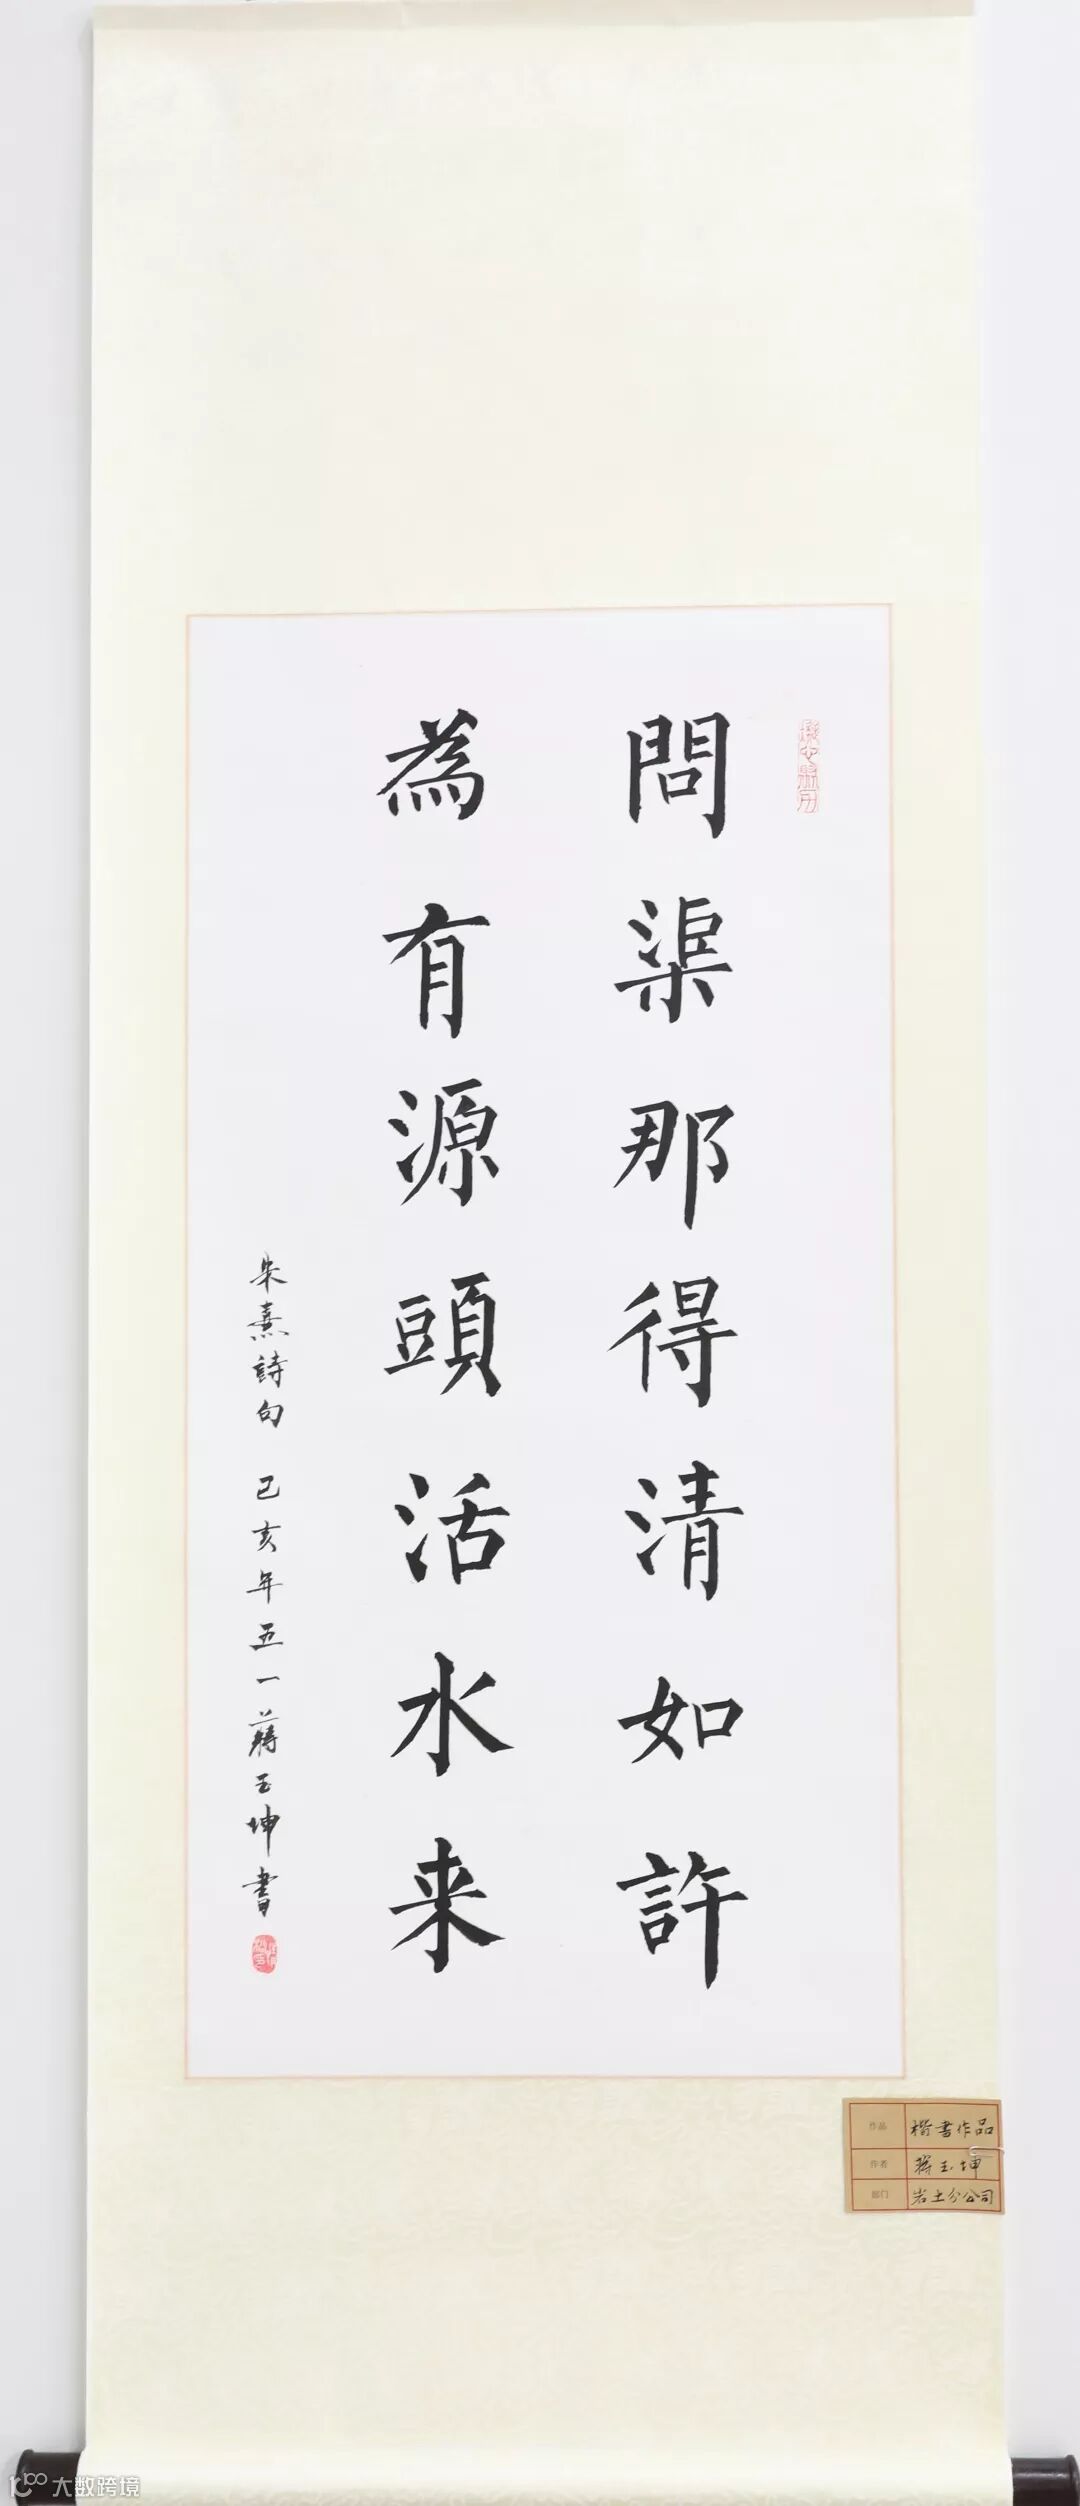 問渠那得清如許
為有源頭活水来
朱熹詩句 己亥年五一蔣玉坤書
作品 楷書作品
作者 蔣玉坤
部门 岩土分公司
大数跨境